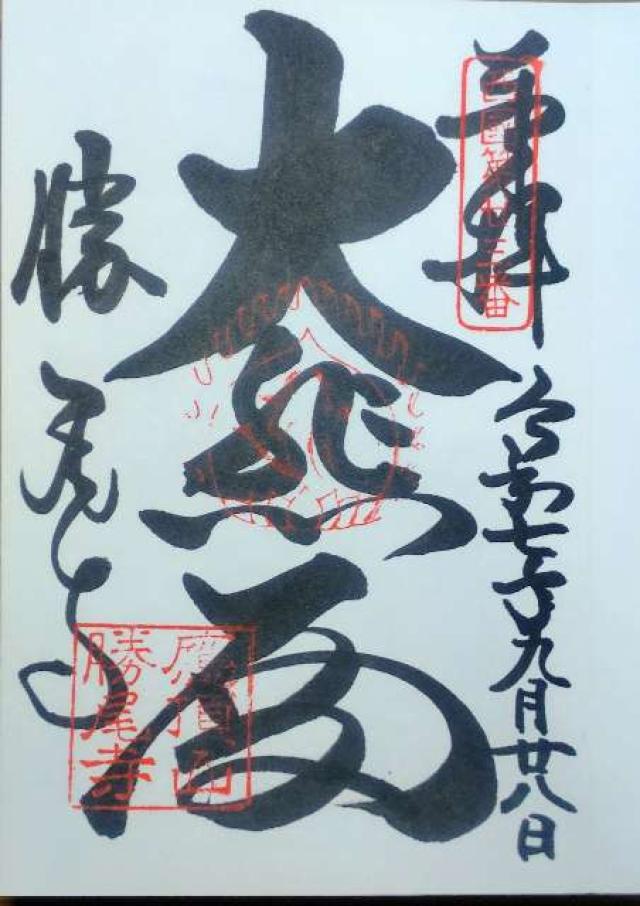 奉拝
西國第廿三番
令和七年九月廿八日
大悲殿
勝尾寺
應頂山
勝尾寺